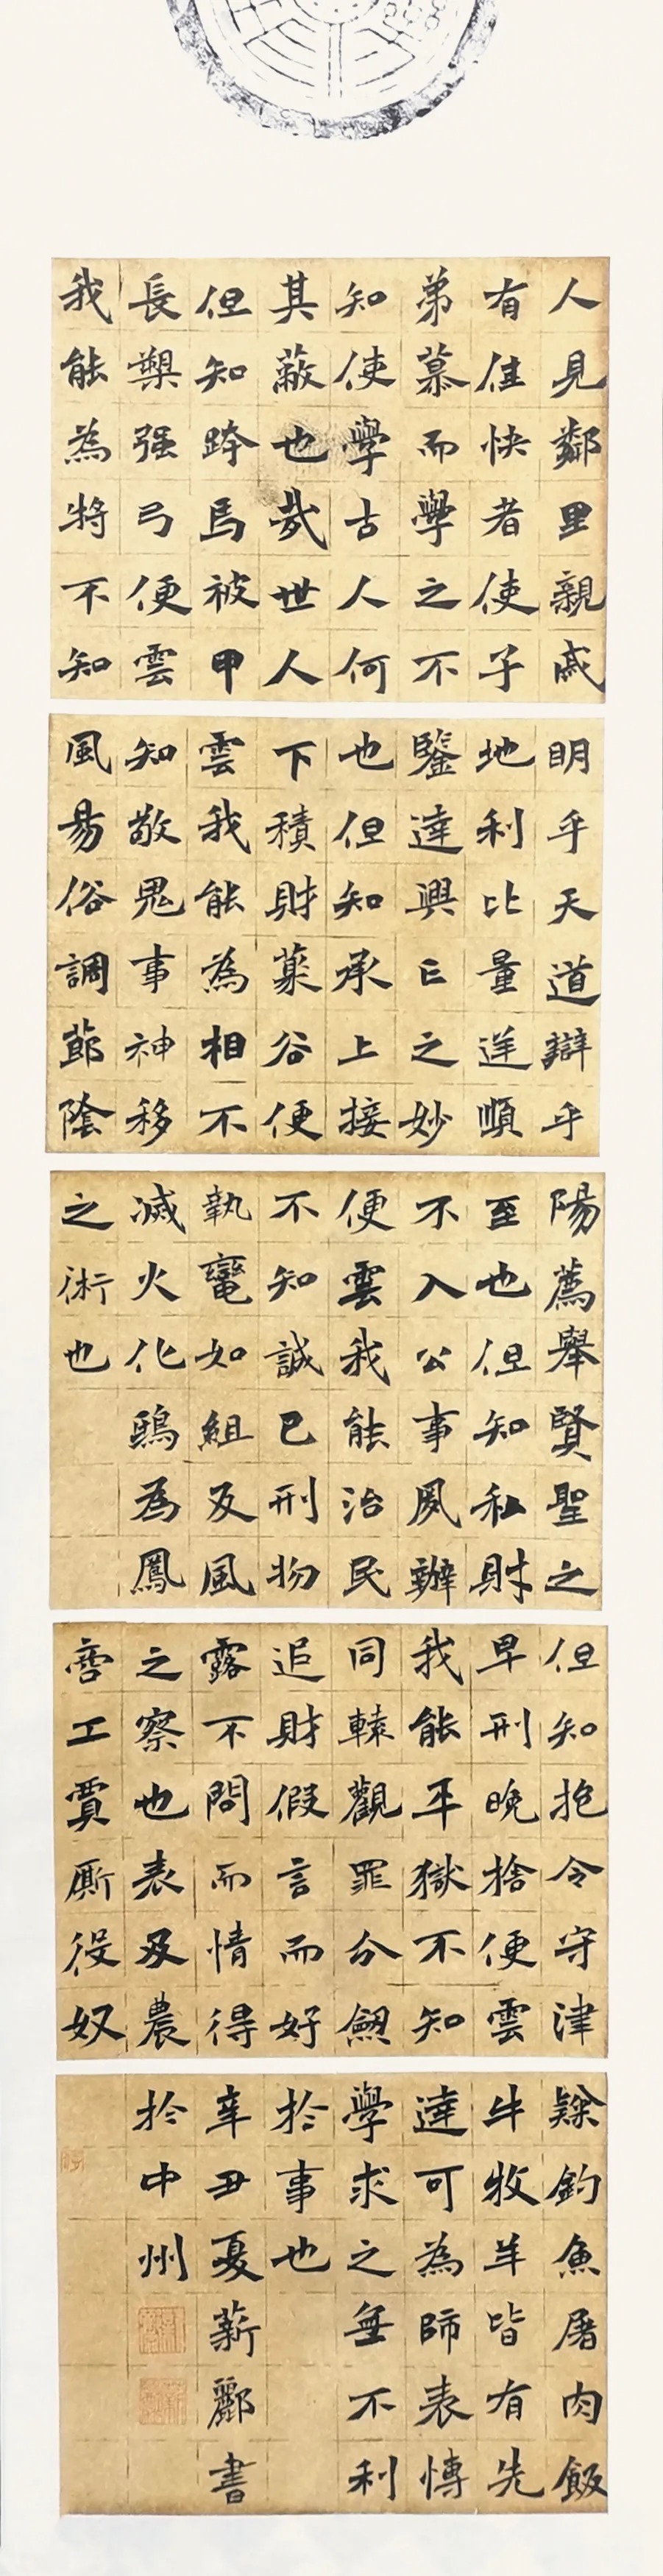 人見鄰里親戚
有佳快者使子
弟慕而學之不
知使學古人何
其蔽也哉世人
但知跨馬被甲
長槊强弓便雲
我能為將不知
明乎天道辯乎
地利比量逆順
鑒達興亡之妙
也但知承上接
下積財聚谷便
雲我能為相不
知敬鬼事神移
風易俗調節陰
陽薦舉賢聖之
至也但知私財
不入公事夙辦
便雲我能治民
不知誠己刑物
執轡如組反風
滅火化鴟為鳳
之術也
但知抱令守津
早刑晚捨便雲
我能平獄不知
同轅觀罪分劍
追財假言而好
露不問而情得
之察也表及農
商工賈廝役奴
隸釣魚屠肉飯
牛牧羊皆有先
達可為師表博
學求之無不利
於事也
辛丑夏薪酈書
於中州